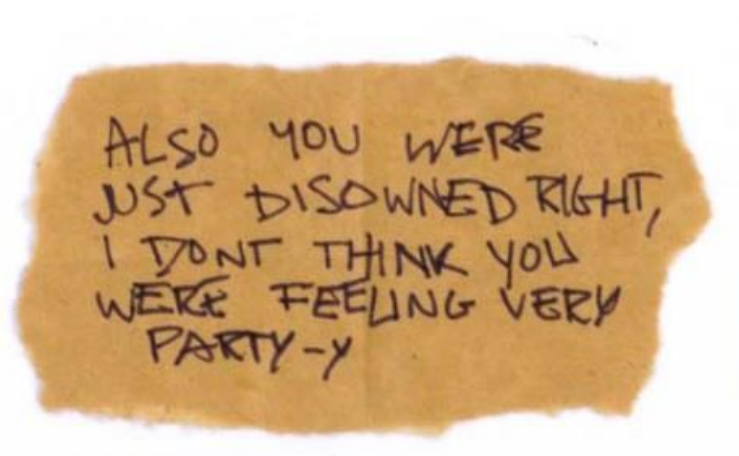 ALSO YOU WERE
JUST DISOWNED RIGHT,
I DONT THINK YOU
WERE FEELING VERY
PARTY-Y